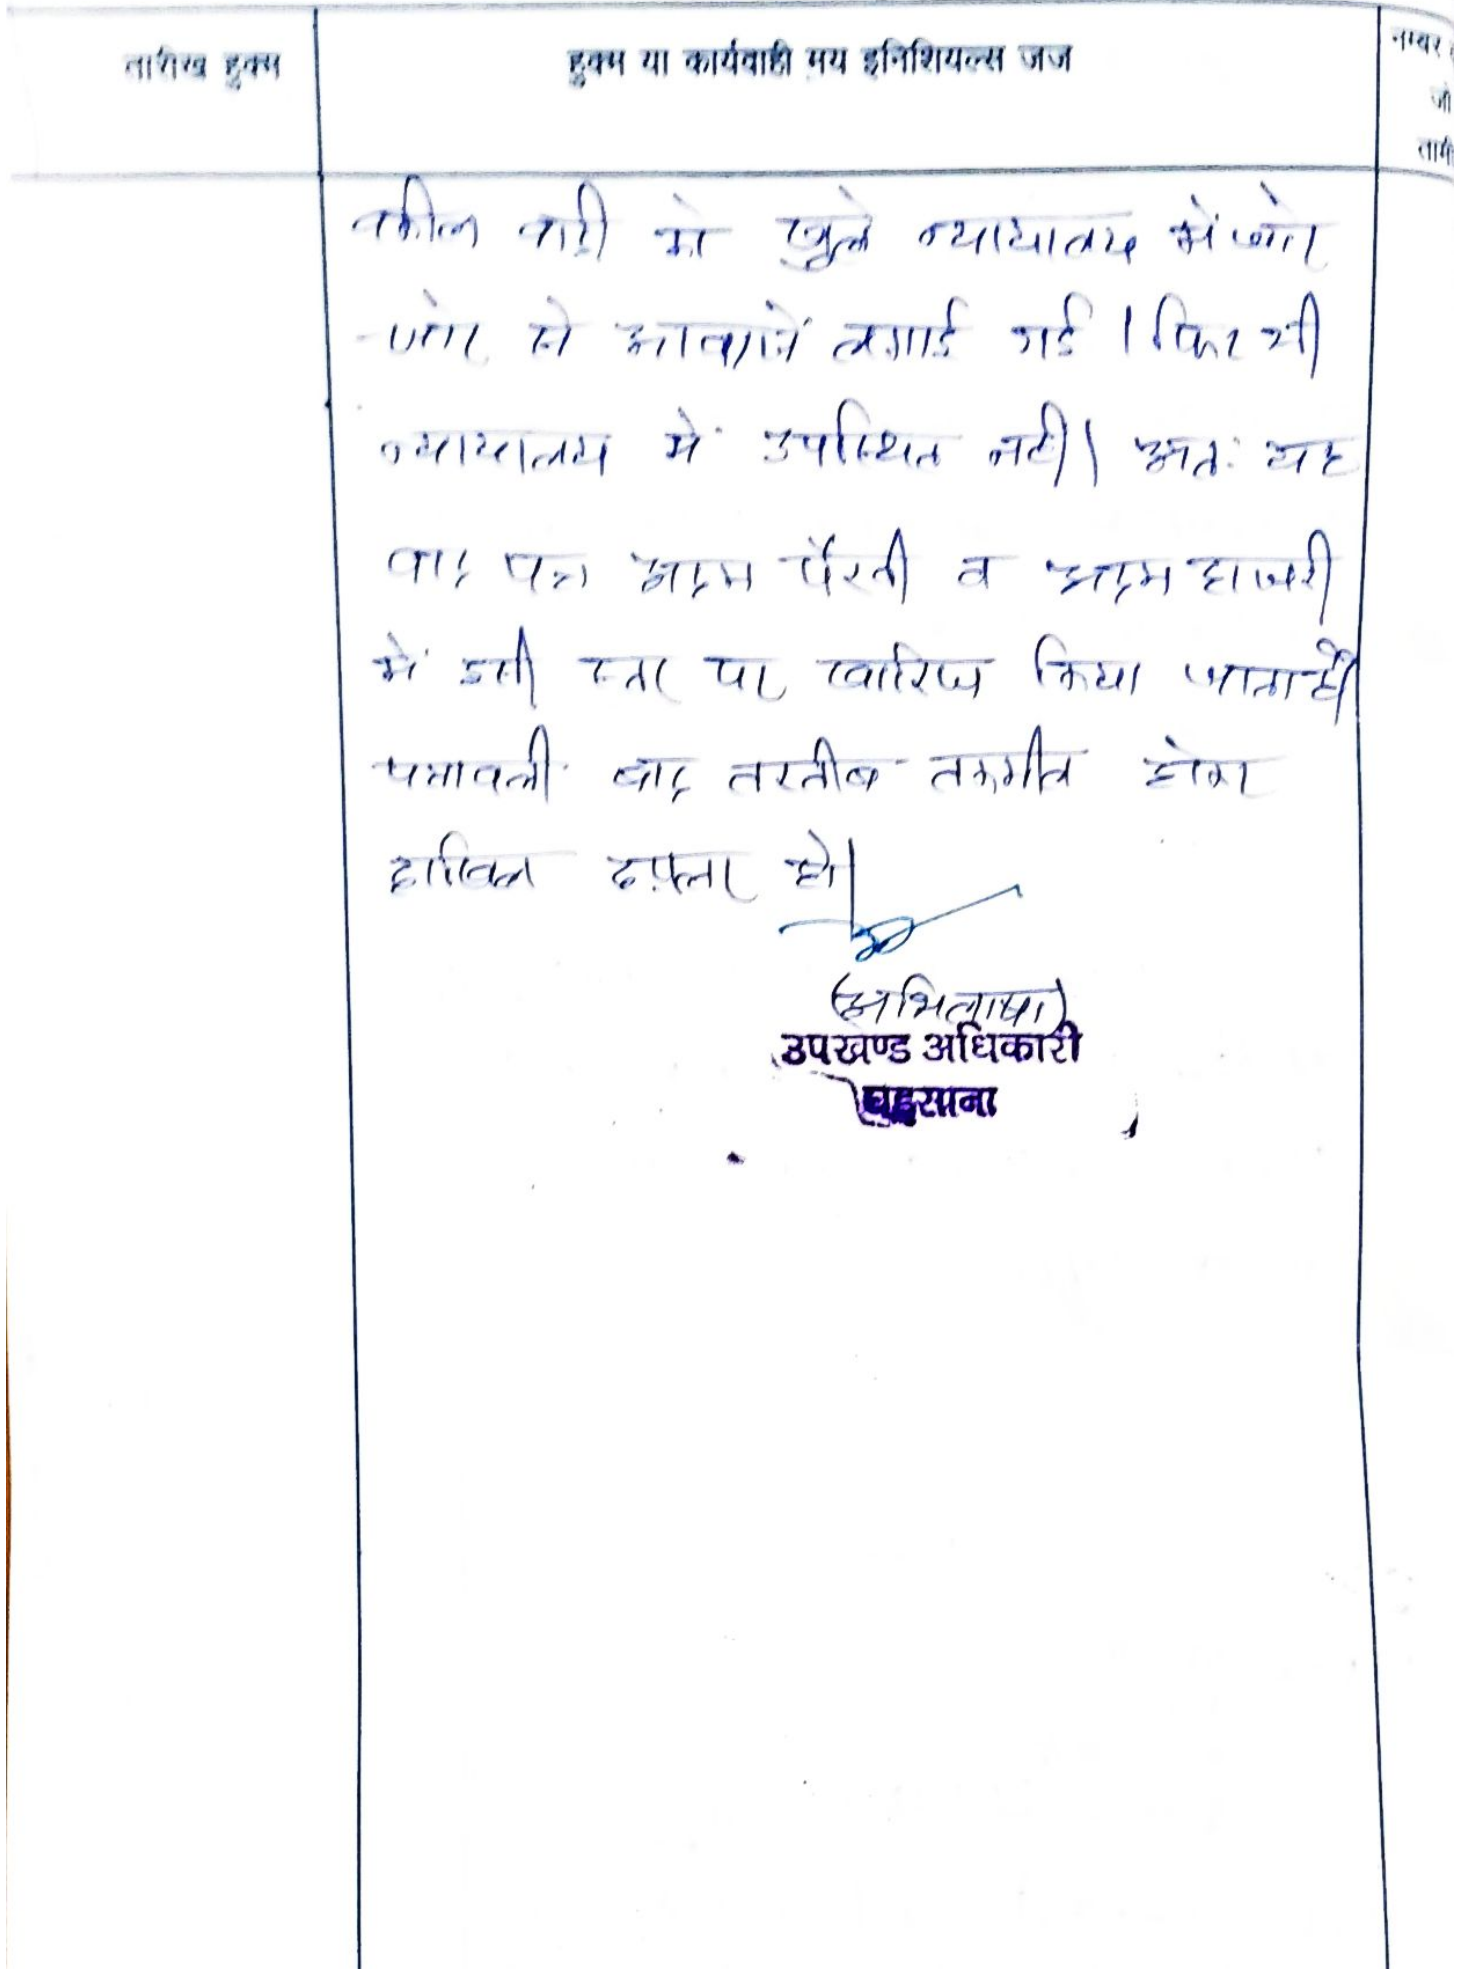 तारीख हुक्म
हुक्म या कार्यवाही मय इनिशियल्स जज
नम्बर
जो
तामी
वकील वादी को खुले न्यायालय में जोर
जोर से आवाजें लगाई गई । फिर भी
न्यायालय में उपस्थित नही। अतः यह
वाद पत्र अदम पैरवी व अदम हाजरी
में इसी स्तर पर खारिज किया जाता है।
पत्रावली बाद तरतीब तकमील होकर
दाखिल दफ्तर हो।
(अभिलाषा)
उपखण्ड अधिकारी
घड़साना